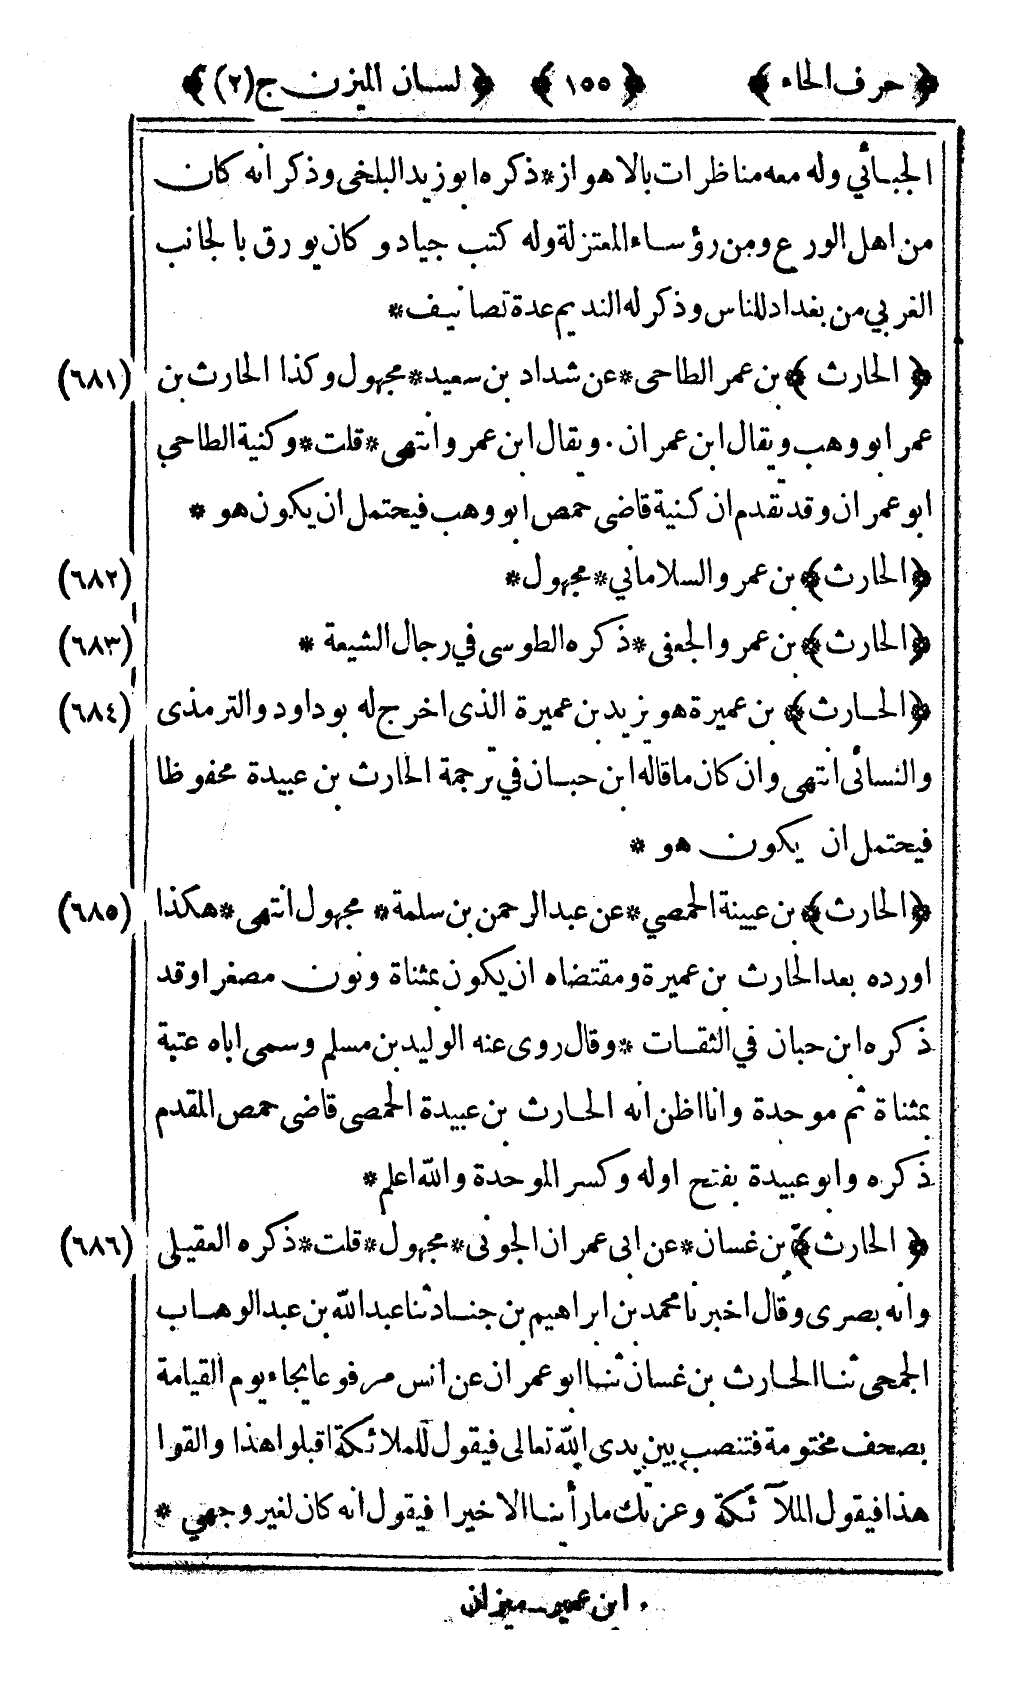 ﴿ حرف الحاء ﴾ ﴿ ١٥٥ ﴾ ﴿ لسان الميزن ج (٢) ﴾
الجبائي وله معه مناظرات بالاهواز * ذكره ابو زيد البلخى وذكر انه كان
من اهل الورع ومن رؤساء المعتزلة وله كتب جياد وكان يورق بالجانب
الغربي من بغداد للناس وذكر له النديم عدة تصانيف *
﴿ الحارث ﴾ بن عمر الطاحى * عن شداد بن سعيد * مجهول وكذا الحارث بن (٦٨١)
عمر ابو وهب ويقال ابن عمران . ويقال ابن عمرو انتهى * قلت * وكنية الطاحي
ابو عمران وقد تقدم ان كنية قاضى حمص ابو وهب فيحتمل ان يكون هو *
﴿ الحارث ﴾ بن عمرو السلاماني * مجهول * (٦٨٢)
﴿ الحارث ﴾ بن عمرو الجعفى * ذكره الطوسى في رجال الشيعة * (٦٨٣)
﴿ الحارث ﴾ بن عميرة هو يزيد بن عميرة الذى اخرج له بوداود والترمذى (٦٨٤)
والنسائى انتهى وان كان ما قاله ابن حبان في ترجمة الحارث بن عبيدة محفوظا
فيحتمل ان يكون هو *
﴿ الحارث ﴾ بن عيينة الحمصي * عن عبد الرحمن بن سلمة * مجهول انتهى * هكذا (٦٨٥)
اورده بعد الحارث بن عميرة ومقتضاه ان يكون بمثناة ونون مصغرا وقد
ذكره ابن حبان في الثقات * وقال روى عنه الوليد بن مسلم وسمى اباه عتبة
بمثناة ثم موحدة وانا اظن انه الحارث بن عبيدة الحمصى قاضى حمص المقدم
ذكره وابو عبيدة بفتح اوله وكسر الموحدة والله اعلم *
﴿ الحارث ﴾ بن غسان * عن ابى عمران الجونى * مجهول * قلت * ذكره العقيلى (٦٨٦)
وانه بصرى وقال اخبرنا محمد بن ابراهيم بن جناد ثنا عبد الله بن عبد الوهاب
الجمحى ثنا الحارث بن غسان ثنا ابو عمران عن انس مرفوعا يجاء يوم القيامة
بصحف مختومة فتنصب بين يدى الله تعالى فيقول للملائكة اقبلوا هذا والقوا
هذا فيقول الملآئكة وعزتك ما رأينا الا خيرا فيقول انه كان لغير وجهي *
. ابن عمير ـ ميزان